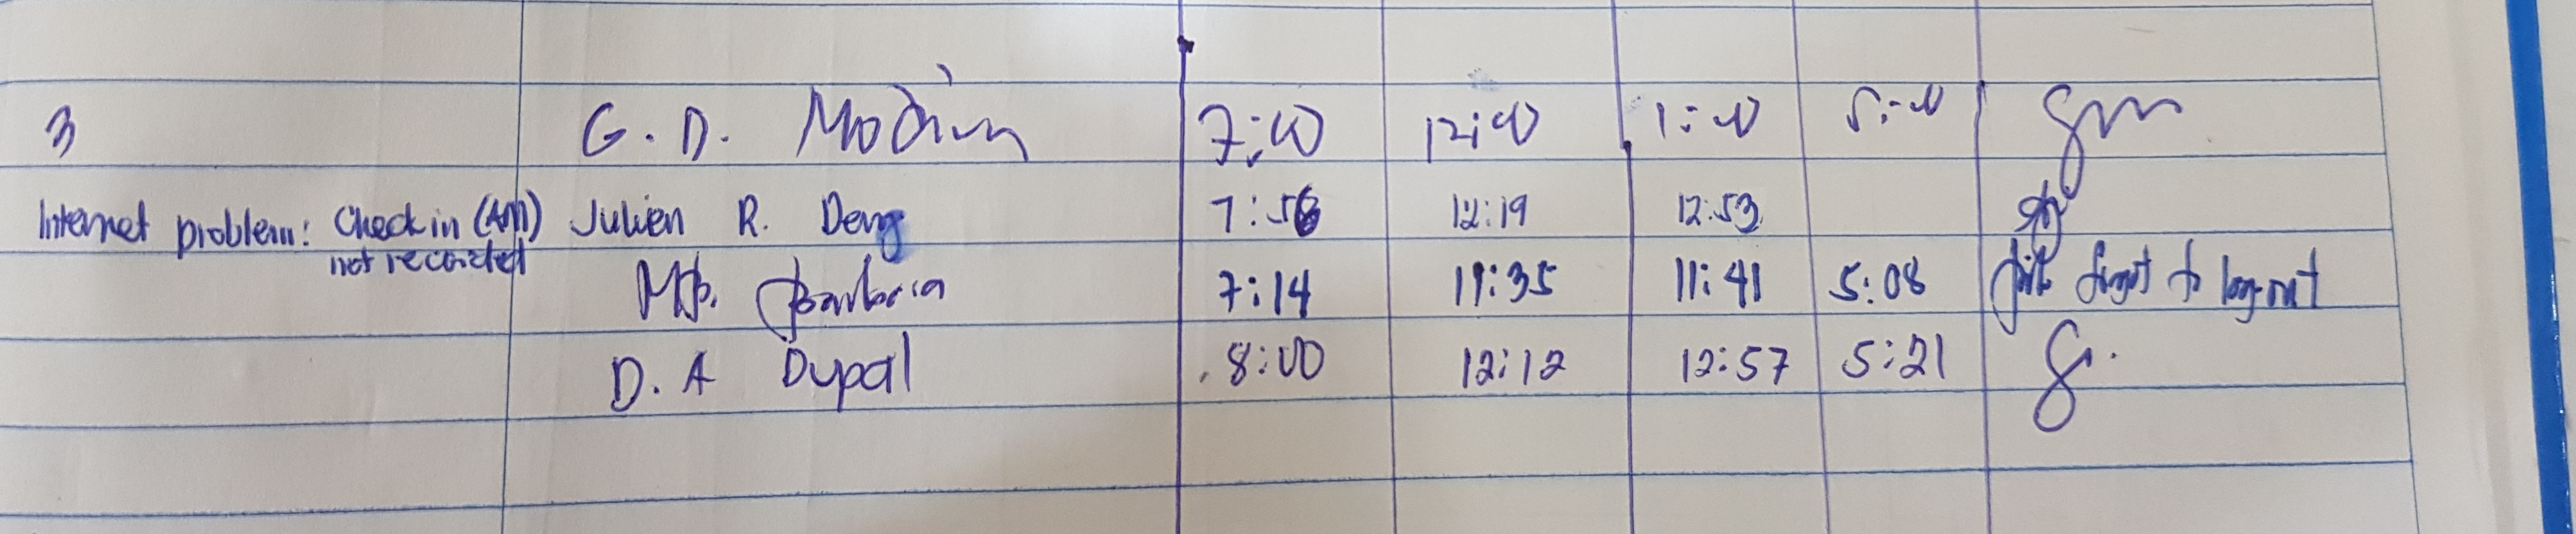 3 G. D. 7:00 12:00 1:00 5:00
Internet problem: Check in (AM) Julien R. Deng 7:56 12:19 12:53
not recorded
7:14 11:35 11:41 5:08 forgot to log-out
D. A Dupal 8:00 12:12 12:57 5:21